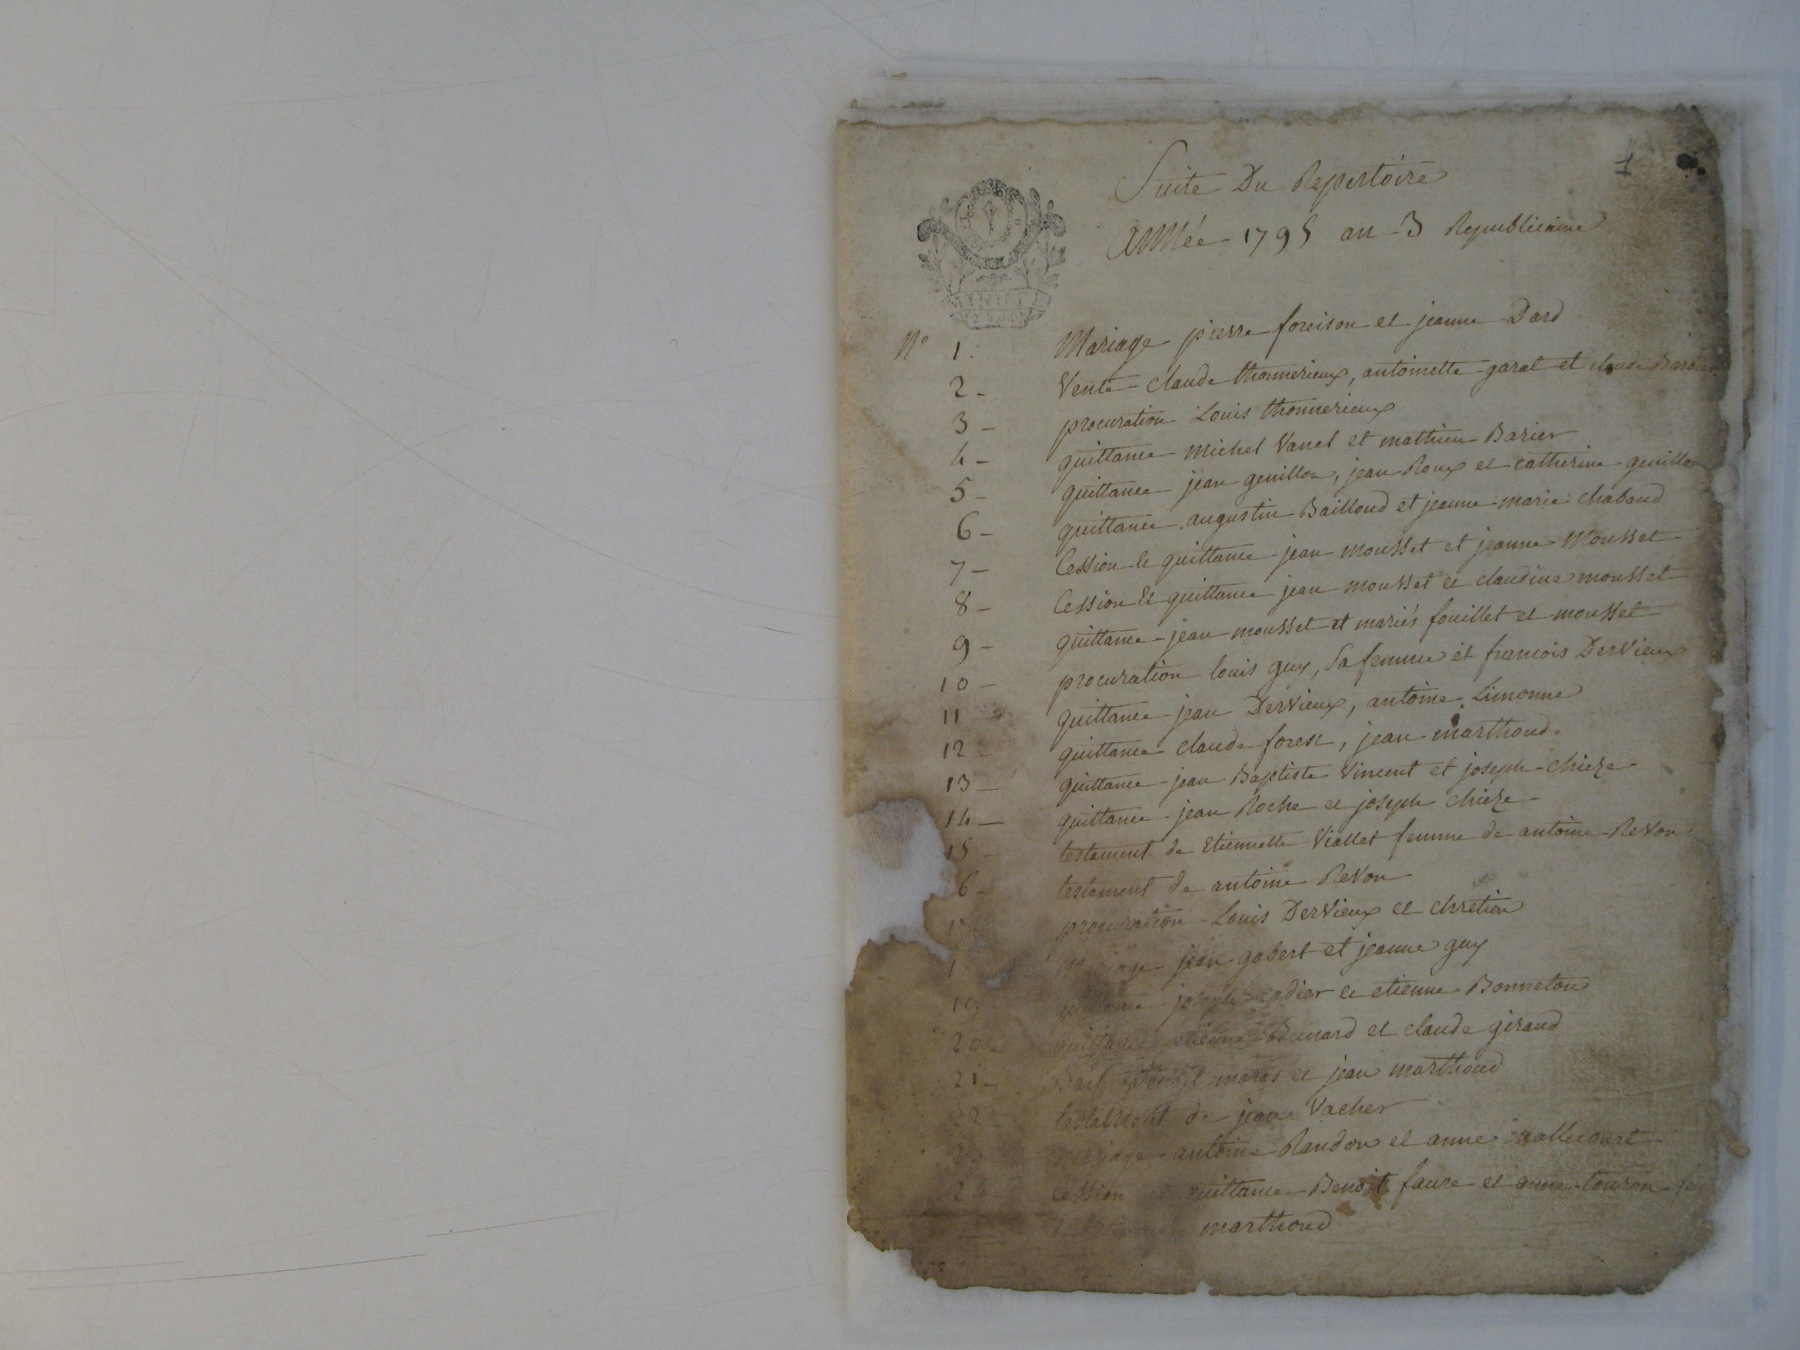 1
Suite Du Repertoire
Année 1795 an 3 Republicaine
MINUTE
N° 1. Mariage pierre foreison et jeanne Dard
2 - Vente claude thonnerieux, antoinette garat et claude
3 - procuration Louis thonnerieux
4 - quittance michel Vanel et mathieu Barier
5 - quittance jean genillon, jean Roux et catherine genillon
6 - quittance augustin Bailloud et jeanne marie chabaud
7 - Cession & quittance jean mousset et jeanne Mousset
8 - Cession & quittance jean mousset et claudine mousset
9 - quittance jean mousset et mariés fouillet et mousset
10 - procuration louis guy, sa femme et francois DerVieux
11 - quittance jean DerVieux, antoine Limonne
12 - quittance claude forest, jean marthoud
13 - quittance jean Baptiste Vincent et joseph chieze
14 - quittance jean Roche et joseph chieze
15 - testament de Etiennette Viallet femme de antoine ReVon
6 - testament de antoine ReVon
procuration Louis DerVieux et chretien
Mariage jean gabert et jeanne guy
19 quittance joseph et etienne Bonneton
20 - quittance etienne et claude giraud
21 - Bail et jean marthoud
22 - testament de jean Vacher
23 mariage antoine Randon et anne
24 Cession quittance Benoit faure et anne touron
marthoud